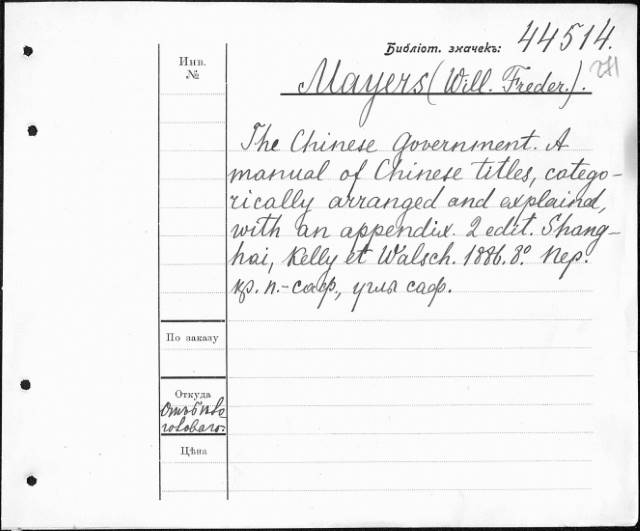 Библіот. значекъ: 44514.
Инв.
№
Mayers (Will. Freder.).
The Chinese Government. A
manual of Chinese titles, catego-
rically arranged and explaind,
with an appendix. 2 edit. Shang-
hai, Kelly et Walsch. 1886. 8° Пер.
кр. п.-саф., углы саф.
По заказу
Откуда
Цѣна